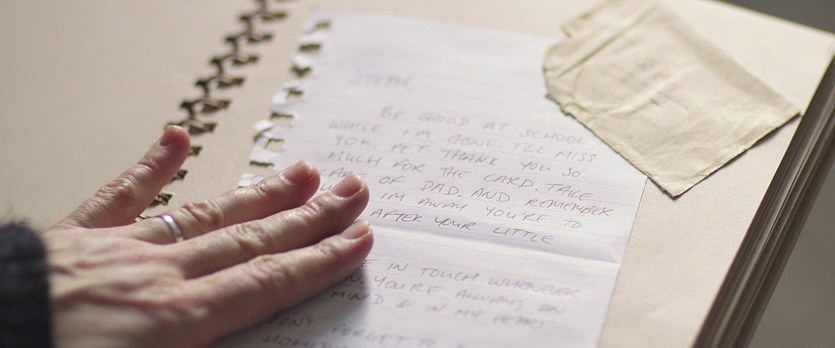 STEPH,
BE GOOD AT SCHOOL
WHILE I'M GONE I'LL MISS
YOU, PET THANK YOU SO
MUCH FOR THE CARD. TAKE
OF DAD AND REMEMBER
I'M AWAY YOU'RE TO
AFTER YOUR LITTLE
IN TOUCH WHENEVER
YOU'RE ALWAYS ON
MIND & IN MY HEART
FORGET TO